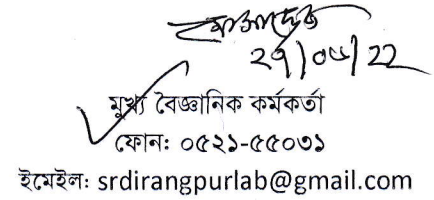 ২৭/০৬/22
মুখ্য বৈজ্ঞানিক কর্মকর্তা
ফোন: ০৫২১-৫৫০৩১
ইমেইল: srdirangpurlab@gmail.com